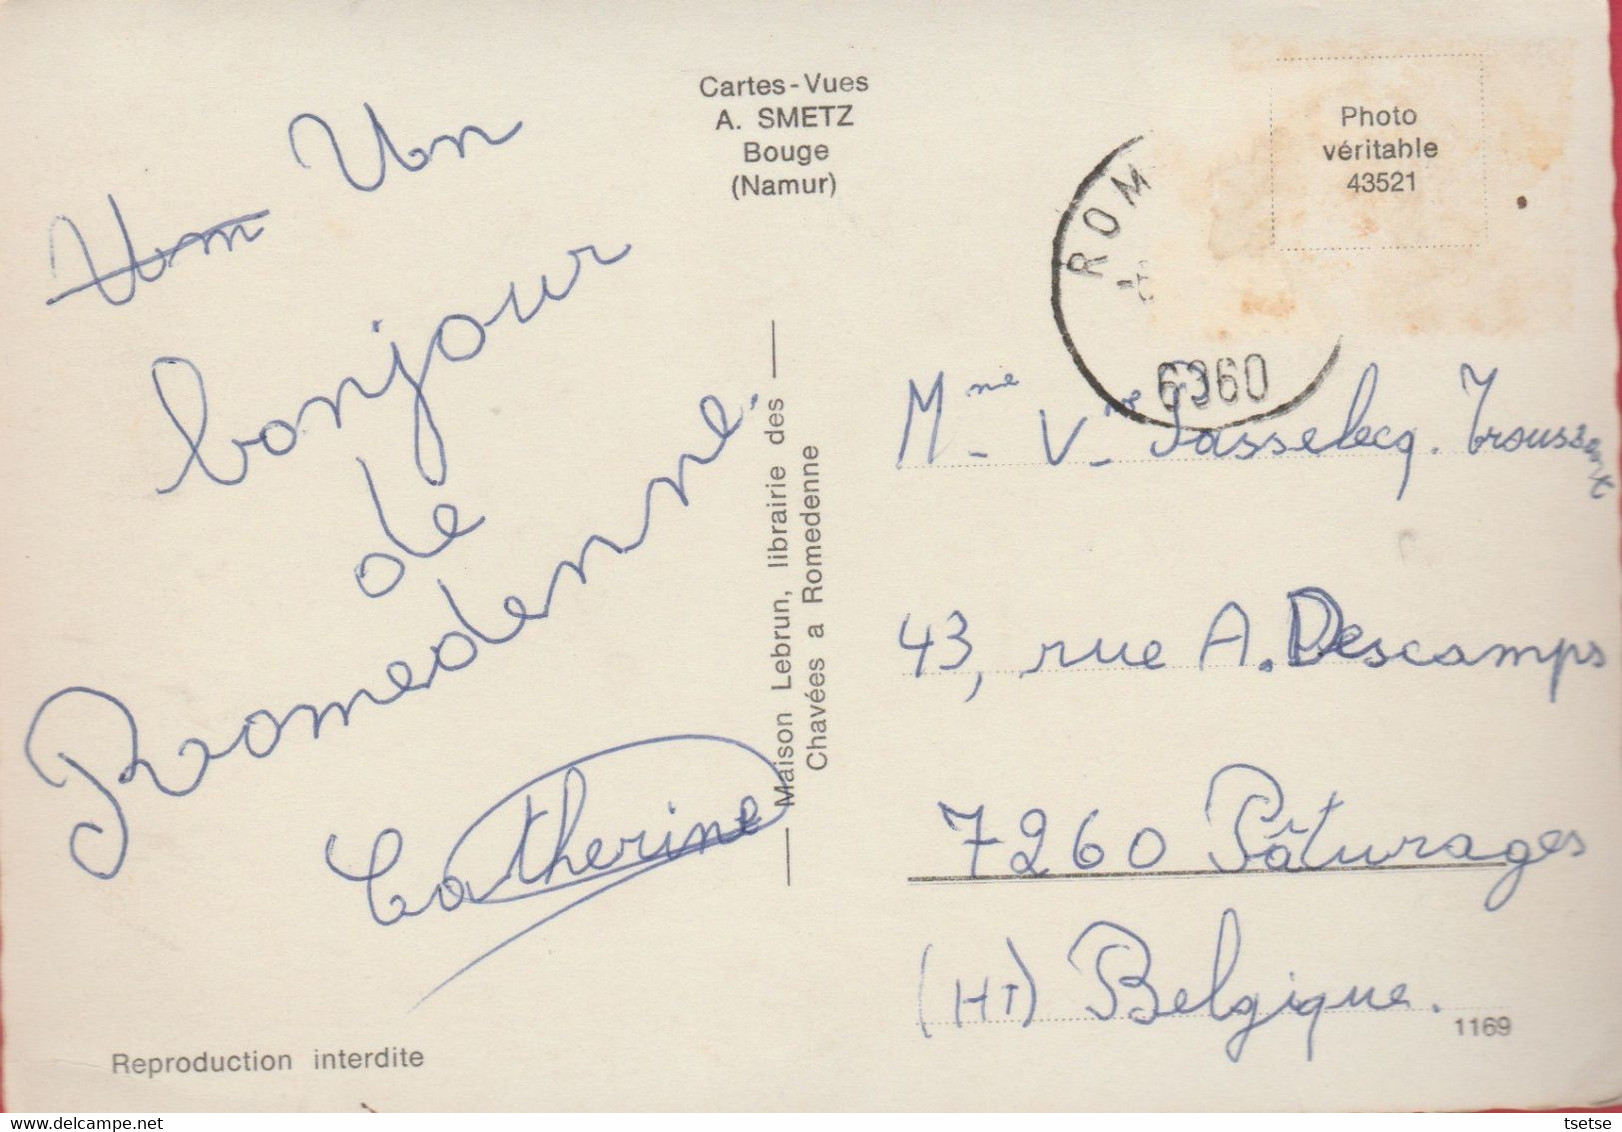 Cartes-Vues
A. SMETZ
Bouge
(Namur)
Photo
véritable
43521
ROM
6360
Un
bonjour
de
Romedenne.
Catherine
Maison Lebrun, librairie des
Chavées a Romedenne
Mme Vve Passelecq. Trousseaux
43, rue A. Descamps
7260 Pâturages
(HT) Belgique.
1169
Reproduction interdite
tsetse